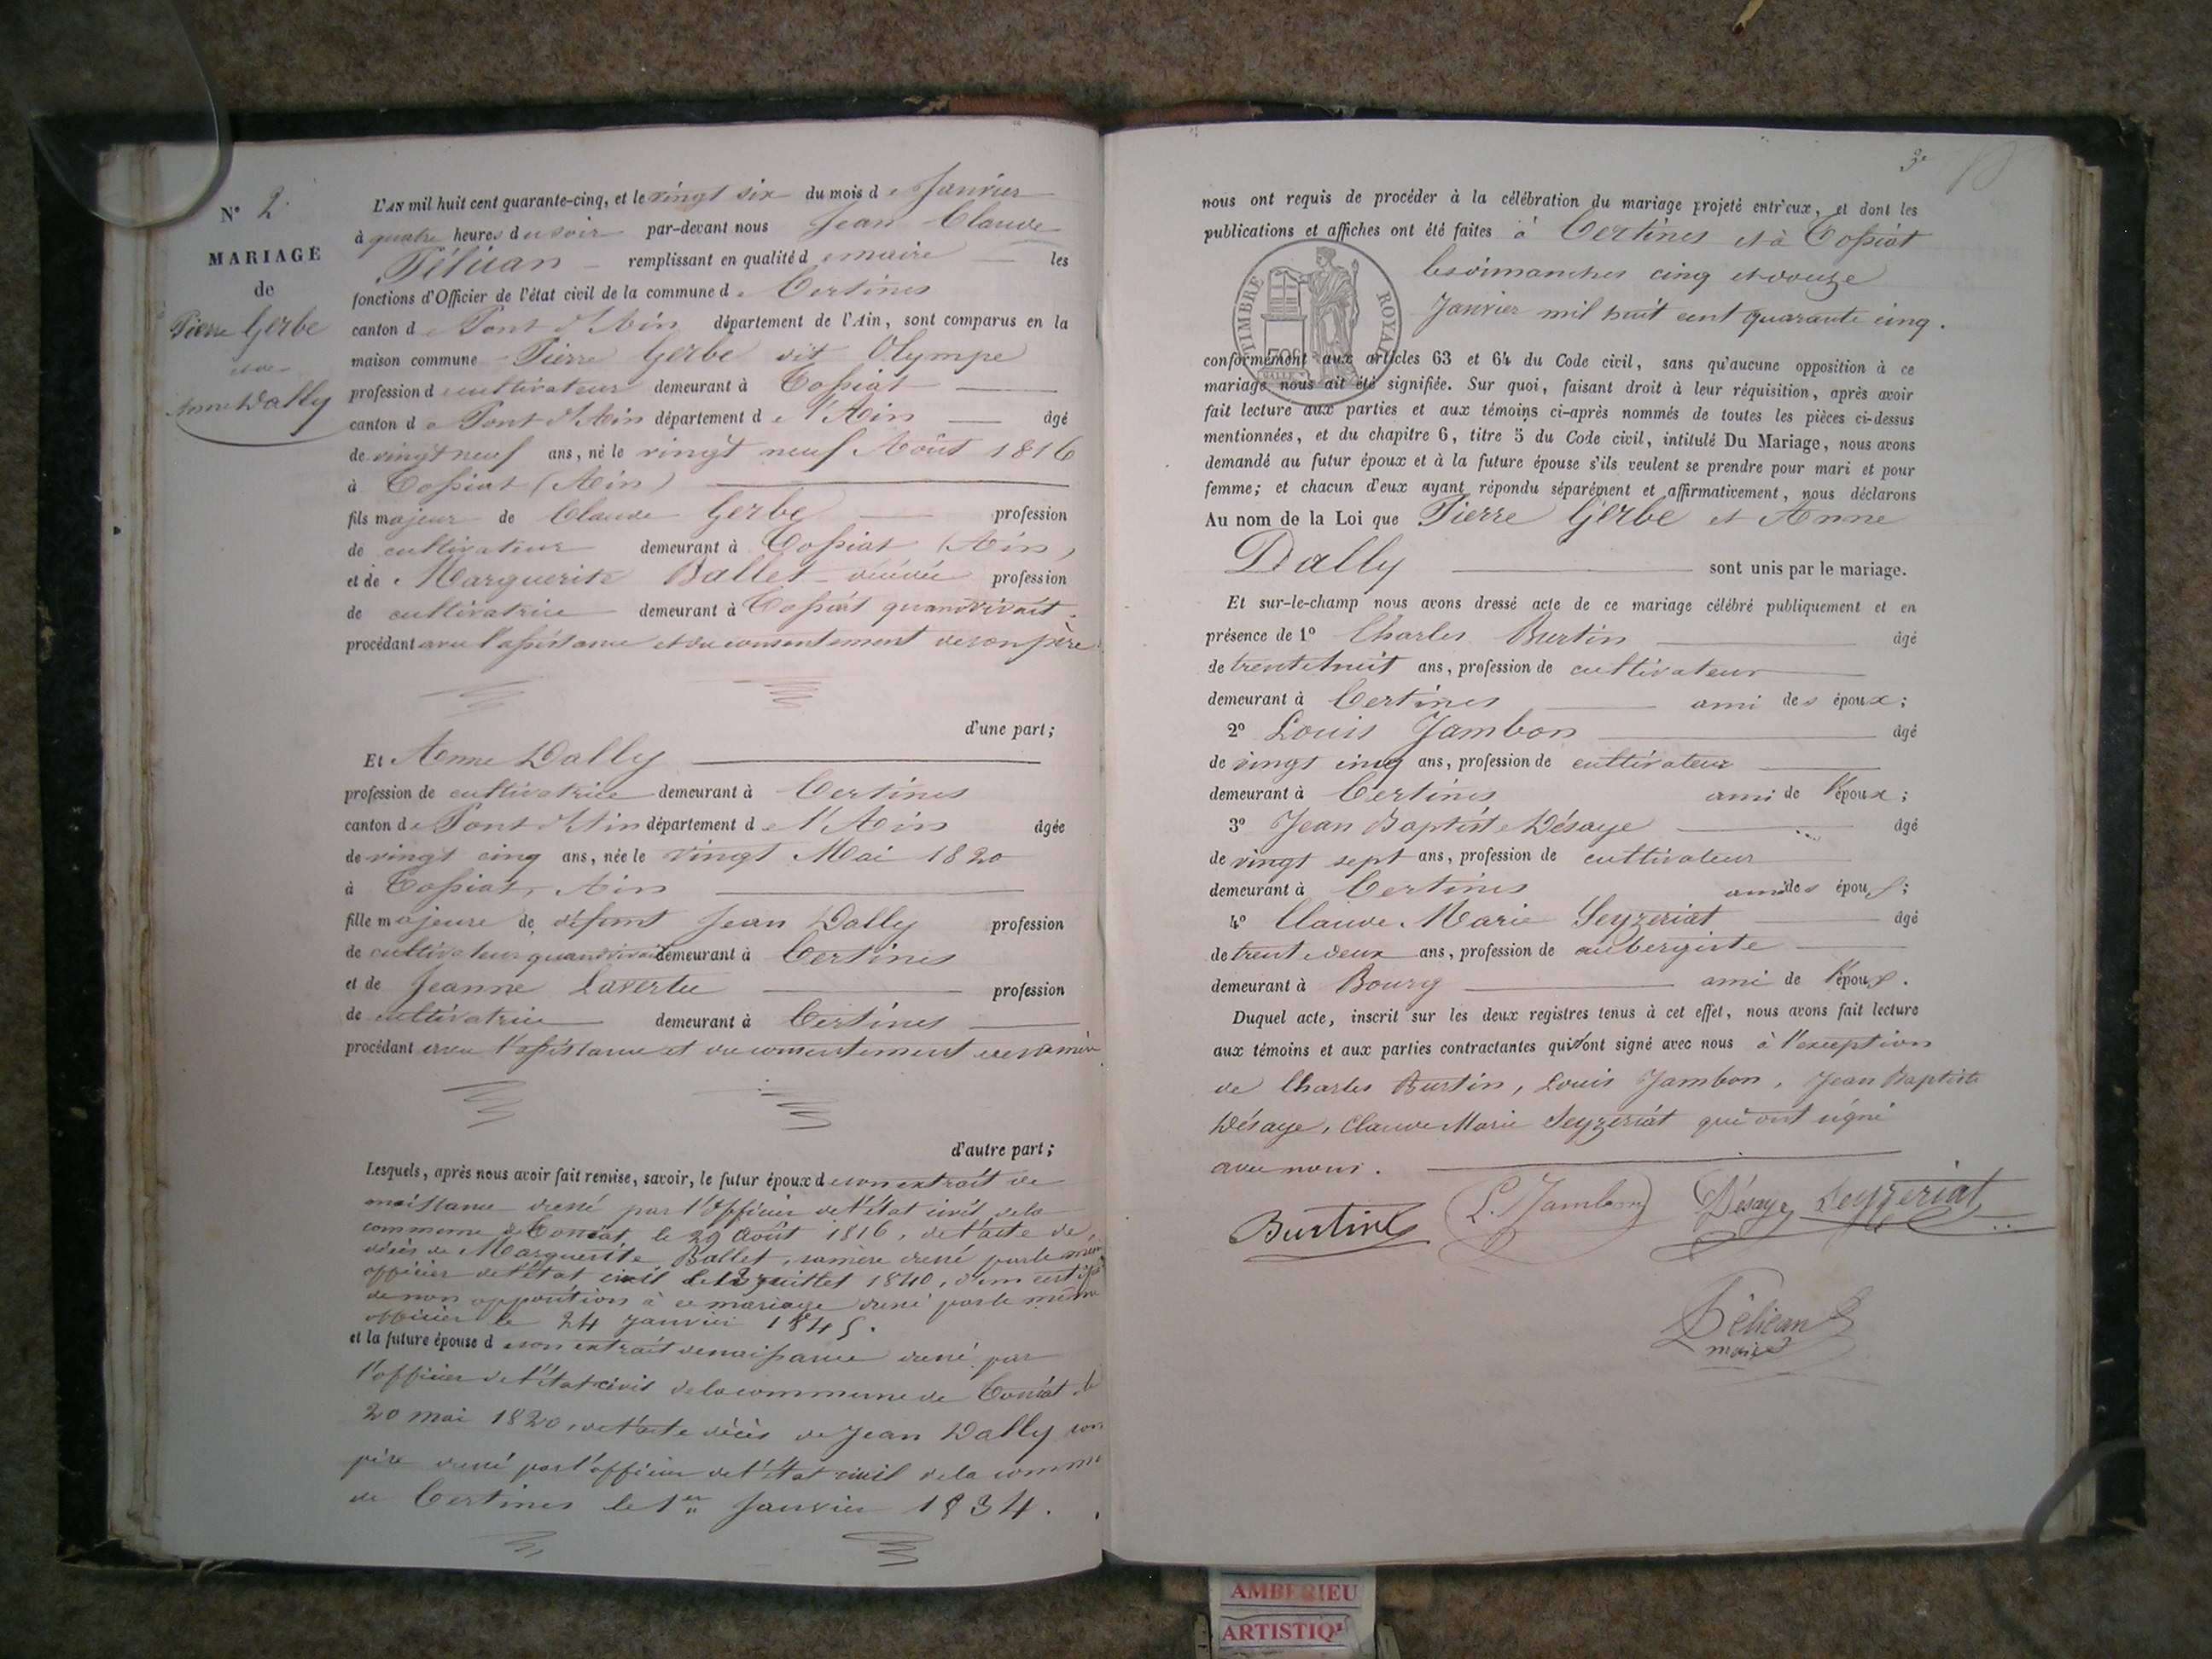 N° 2.
MARIAGE
de
Pierre Gerbe
et de
Anne Dally
L'AN mil huit cent quarante-cinq, et le vingt six du mois de Janvier
à quatre heures du soir par-devant nous Jean Claude
Pélican remplissant en qualité de maire les
fonctions d'Officier de l'état civil de la commune de Certines
canton de Pont d'Ain département de l'Ain, sont comparus en la
maison commune Pierre Gerbe dit Olympe
profession de cultivateur demeurant à Tossiat
canton de Pont d'Ain département de l'Ain âgé
de vingt neuf ans, né le vingt neuf Août 1816
à Tossiat (Ain)
fils majeur de Claude Gerbe profession
de cultivateur demeurant à Tossiat (Ain)
et de Marguerite Ballet décédée profession
de cultivatrice demeurant à Tossiat quand vivait.
procédant avec l'assistance et du consentement de son père
d'une part;
Et Anne Dally
profession de cultivatrice demeurant à Certines
canton de Pont d'Ain département de l'Ain âgée
de vingt cinq ans, née le vingt Mai 1820
à Tossiat, Ain
fille majeure de défunt Jean Dally profession
de cultivateur quand vivait demeurant à Certines
et de Jeanne Lavertu profession
de cultivatrice demeurant à Certines
procédant avec l'assistance et du consentement de sa mère
d'autre part;
Lesquels, après nous avoir fait remise, savoir, le futur époux de son extrait de
naissance dressé par l'Officier de l'état civil de la
commune de Tossiat le 29 Août 1816, de l'acte de
décès de Marguerite Ballet, sa mère dressé par le même
officier de l'état civil le juillet 1840, d'un certificat
de non opposition à ce mariage dressé par le même
officier le 24 janvier 1845.
et la future épouse de son extrait de naissance dressé par
l'officier de l'état civil de la commune de Tossiat le
20 mai 1820, de l'acte décès de Jean Dally son
père dressé par l'officier de l'état civil de la commune
de Certines le 1er Janvier 1834.
3e
nous ont requis de procéder à la célébration du mariage projeté entr'eux, et dont les
publications et affiches ont été faites à Certines et à Tossiat
les dimanches cinq et douze
Janvier mil huit cent quarante cinq.
TIMBRE ROYAL
conformément aux articles 63 et 64 du Code civil, sans qu'aucune opposition à ce
mariage nous ait été signifiée. Sur quoi, faisant droit à leur réquisition, après avoir
fait lecture aux parties et aux témoins ci-après nommés de toutes les pièces ci-dessus
mentionnées, et du chapitre 6, titre 5 du Code civil, intitulé Du Mariage, nous avons
demandé au futur époux et à la future épouse s'ils veulent se prendre pour mari et pour
femme; et chacun d'eux ayant répondu séparément et affirmativement, nous déclarons
Au nom de la Loi que Pierre Gerbe et Anne
Dally sont unis par le mariage.
Et sur-le-champ nous avons dressé acte de ce mariage célébré publiquement et en
présence de 1° Charles Burtin âgé
de trente huit ans, profession de cultivateur
demeurant à Certines ami des époux;
2° Louis Jambon âgé
de vingt cinq ans, profession de cultivateur
demeurant à Certines ami de l'époux;
3° Jean Baptiste Désaye âgé
de vingt sept ans, profession de cultivateur
demeurant à Certines ami des époux;
4° Claude Marie Seyzeriat âgé
de trente deux ans, profession de aubergiste
demeurant à Bourg ami de l'époux.
Duquel acte, inscrit sur les deux registres tenus à cet effet, nous avons fait lecture
aux témoins et aux parties contractantes qui ont signé avec nous à l'exception
de Charles Burtin, Louis Jambon, Jean Baptiste
Désaye, Claude Marie Seyzeriat qui ont signé
avec nous.
Burtin L. Jambon Désaye Seyzeriat
Pélican
maire
AMBERIEU
ARTISTIQ